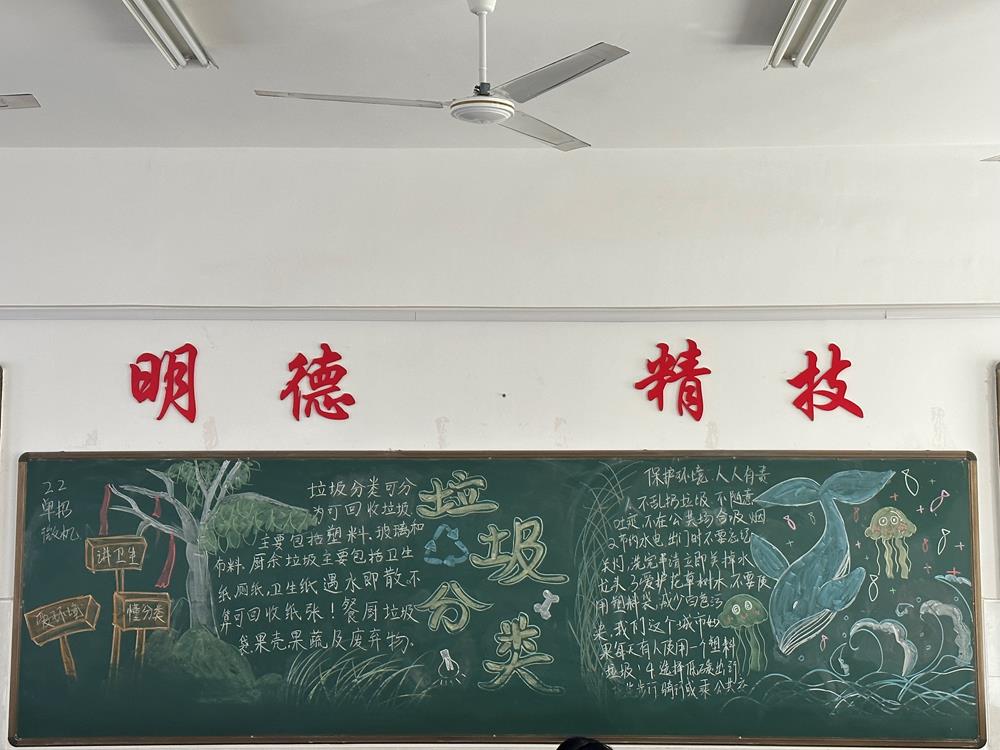 明德 精技
22
单招
微机
讲卫生
爱环境
懂分类
垃圾分类可分
为可回收垃圾
主要包括塑料、玻璃和
布料.厨余垃圾主要包括卫生
纸,厕纸,卫生纸遇水即散,不
算可回收纸张!餐厨垃圾
袋,果壳,果蔬,及废弃物.
垃圾分类
保护环境.人人有责
人不乱扔垃圾.不随意
吐痰,不在公共场合吸烟
2节约水电,出门时不要忘记
关闭,洗完手请立即关掉水
龙头.3爱护花草树木.不要使
用塑料袋.减少白色污
染.我们这个城市如
果每天有人使用一个塑料
垃圾.4选择低碳出行
步行骑行或乘公共交